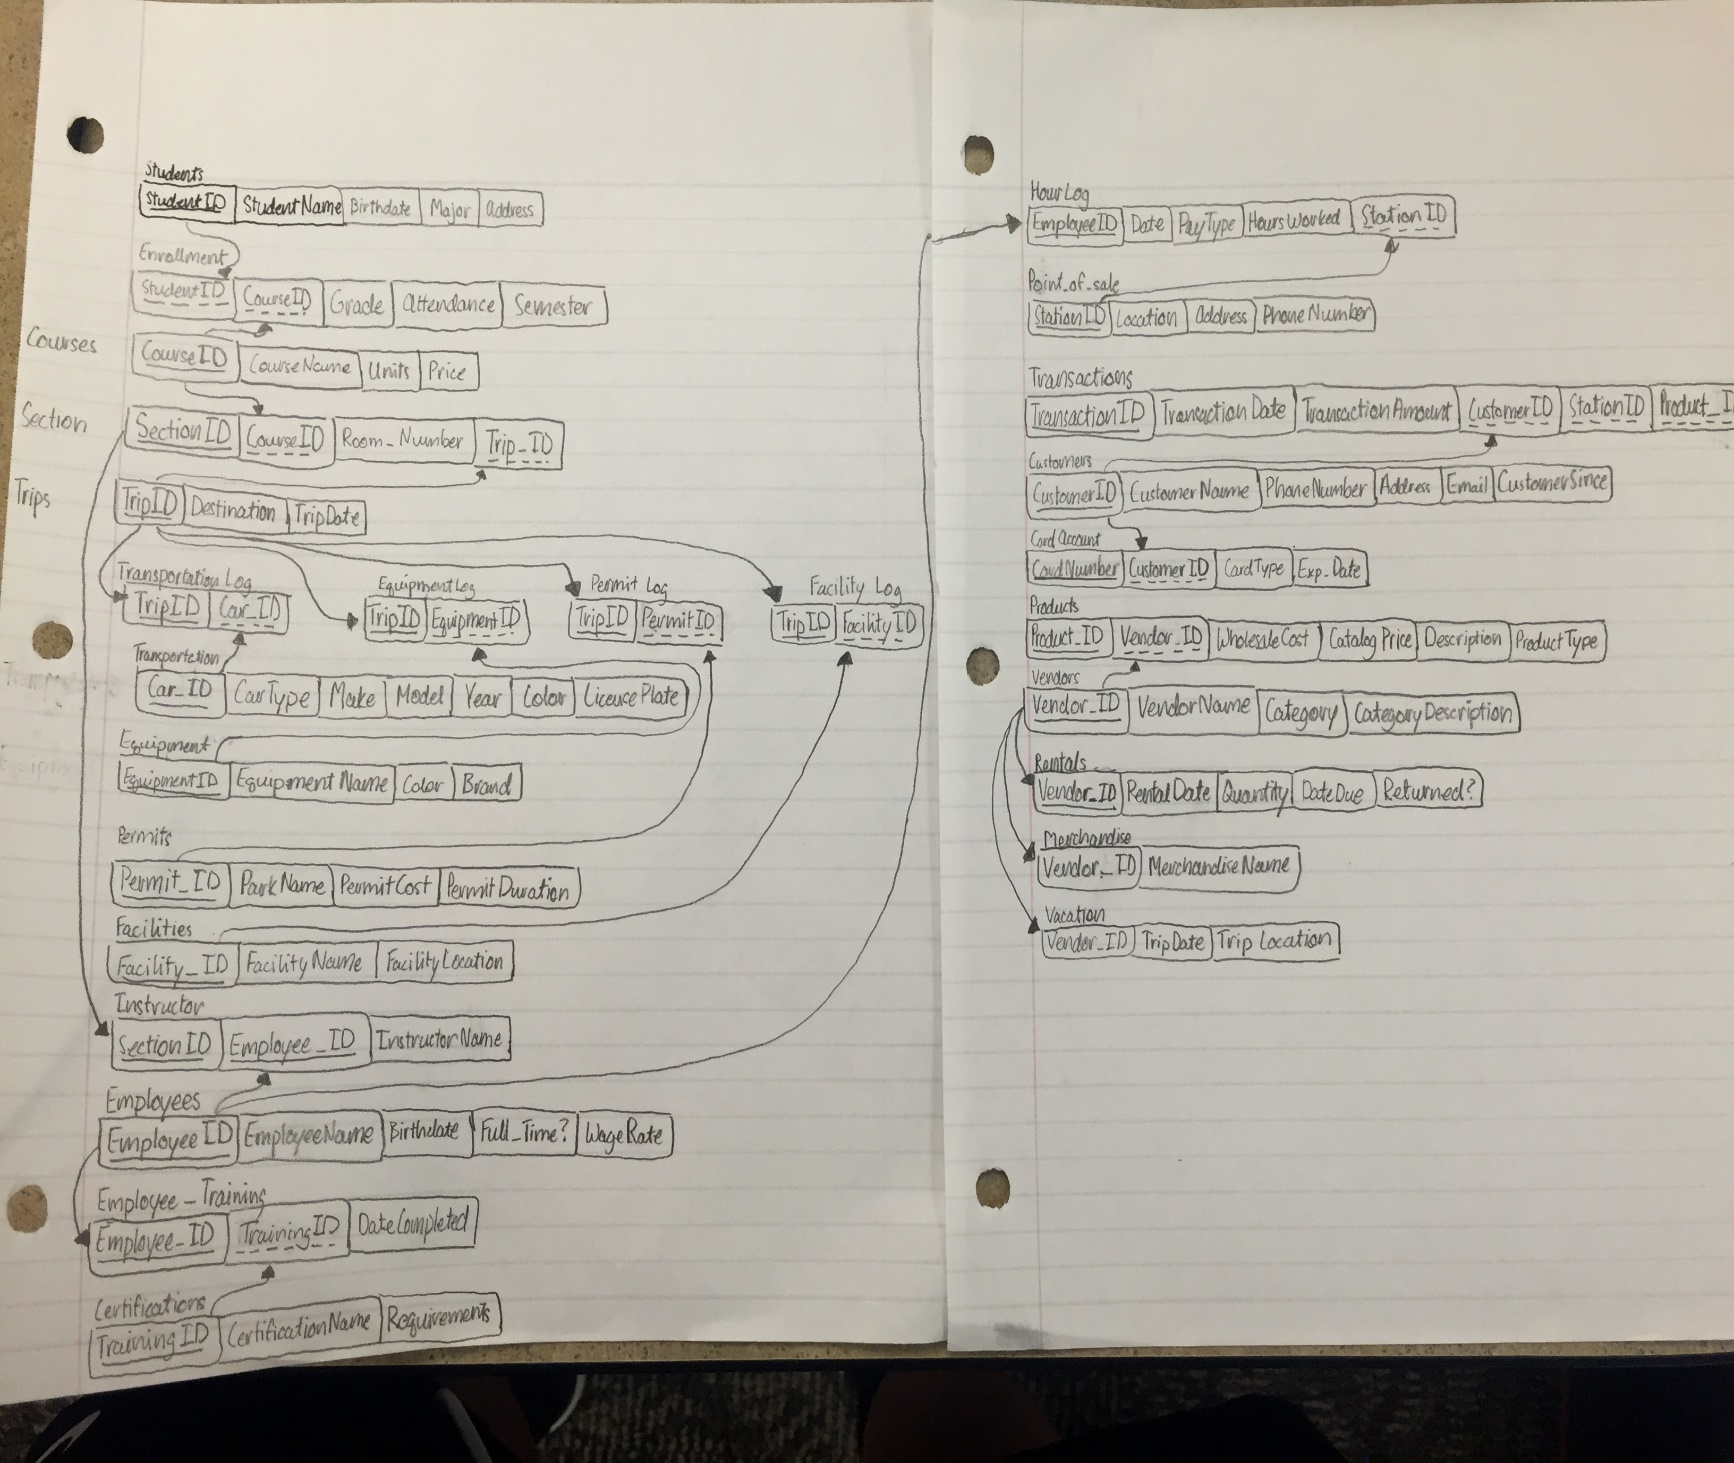 Students
StudentID StudentName Birthdate Major Address
Enrollment
StudentID CourseID Grade Attendance Semester
Courses
CourseID CourseName Units Price
Section
SectionID CourseID Room_Number Trip_ID
Trips
TripID Destination TripDate
Transportation Log
TripID Car_ID
Equipment Log
TripID EquipmentID
Permit Log
TripID PermitID
Facility Log
TripID FacilityID
Transportation
Car_ID CarType Make Model Year Color LicensePlate
Equipment
EquipmentID Equipment Name Color Brand
Permits
Permit_ID ParkName PermitCost PermitDuration
Facilities
Facility_ID FacilityName FacilityLocation
Instructor
SectionID Employee_ID InstructorName
Employees
EmployeeID EmployeeName Birthdate Full_Time? WageRate
Employee_Training
Employee_ID TrainingID DateCompleted
Certifications
TrainingID CertificationName Requirements
Hour Log
EmployeeID Date PayType HoursWorked StationID
Point_of_sale
StationID Location Address PhoneNumber
Transactions
TransactionID Transaction Date Transaction Amount CustomerID StationID Product_I
Customers
CustomerID CustomerName PhoneNumber Address Email CustomerSince
Card Account
CardNumber CustomerID CardType Exp_Date
Products
Product_ID Vendor_ID WholesaleCost Catalog Price Description ProductType
Vendors
Vendor_ID VendorName Category CategoryDescription
Rentals
Vendor_ID RentalDate Quantity DateDue Returned?
Merchandise
Vendor_ID MerchandiseName
Vacation
Vendor_ID TripDate Trip Location